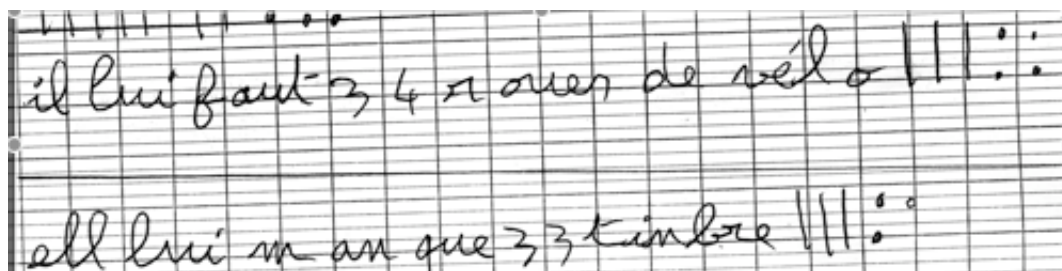 il lui faut 34 roues de vélo
ell lui manque 33 timbre